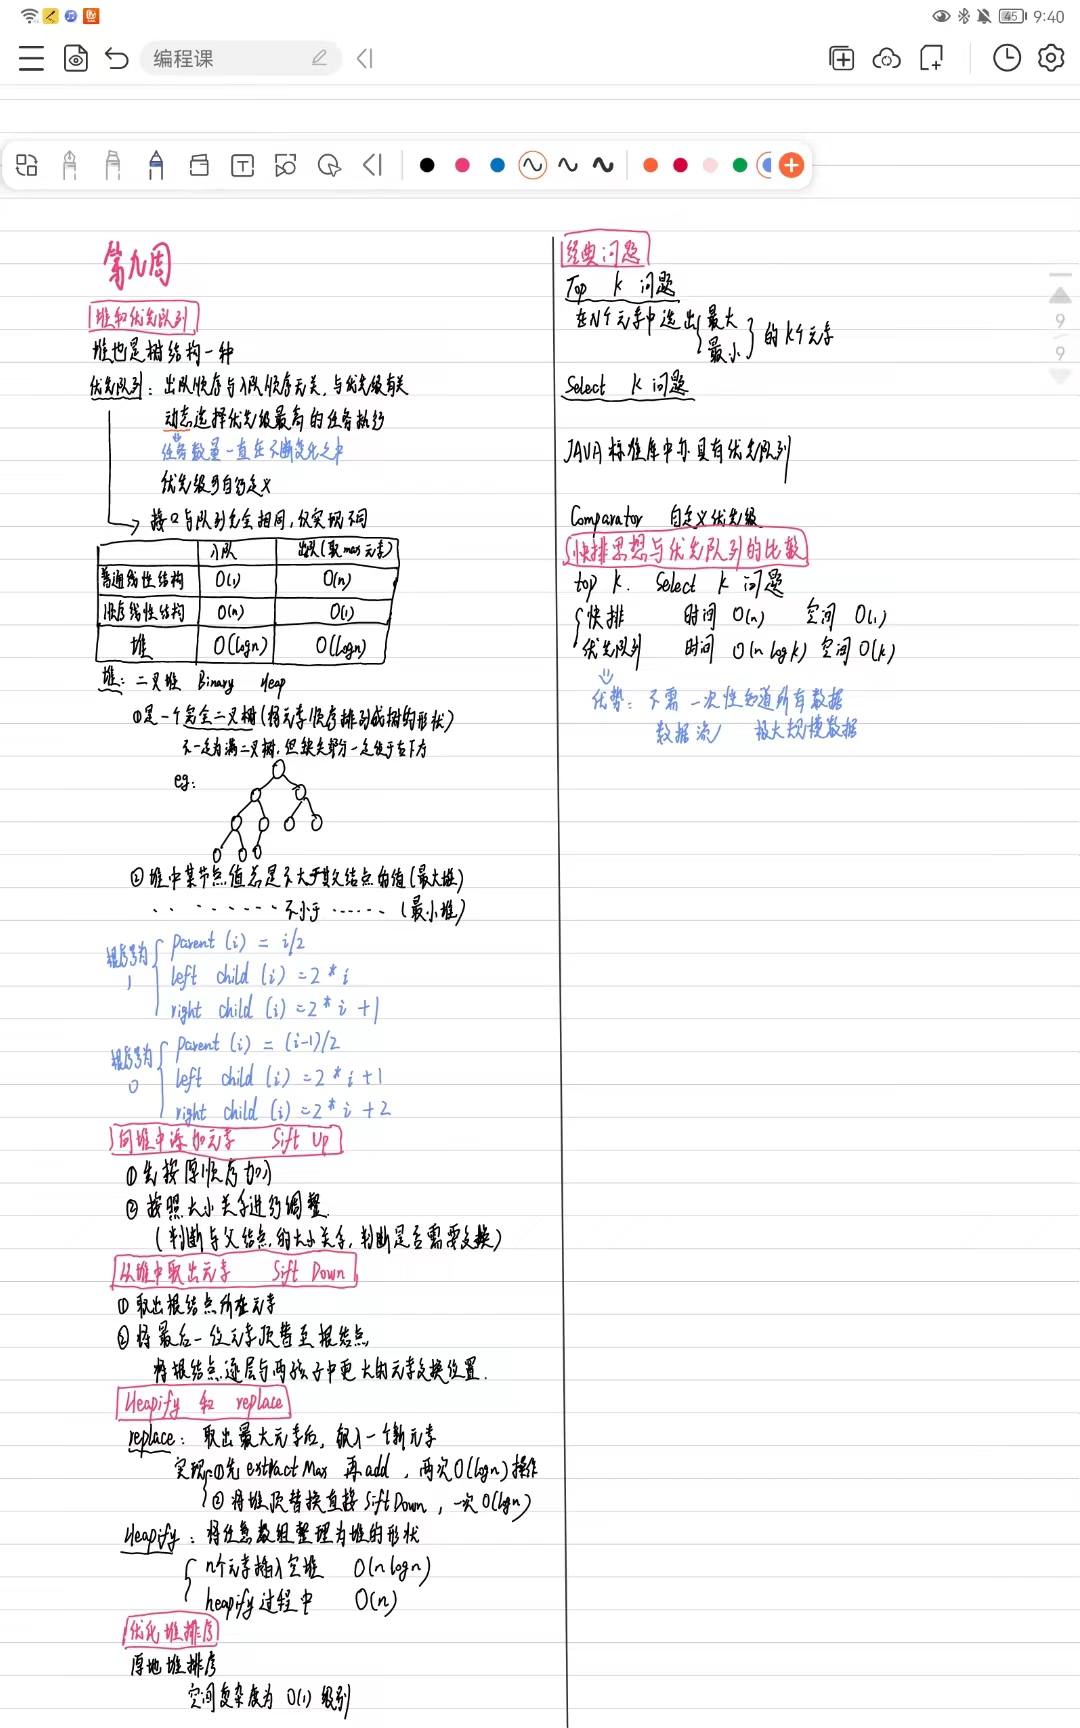 45 9:40
编程课
9
9
第九周
堆和优先队列
堆也是树结构一种
优先队列：出队顺序与入队顺序无关，与优先级有关
动态选择优先级最高的任务执行
任务数量一直在不断变化之中
优先级可自行定义
接口与队列完全相同，仅实现不同
入队 出队(取max元素)
普通线性结构 O(1) O(n)
顺序线性结构 O(n) O(1)
堆 O(logn) O(logn)
堆：二叉堆 Binary Heap
①是一个完全二叉树(将元素顺序排列成树的形状)
不一定为满二叉树，但缺失部分一定位于右下方
eg:
②堆中某节点值总是不大于其父结点的值(最大堆)
不小于 …… (最小堆)
根序号为1
parent (i) = i/2
left child (i) = 2 * i
right child (i) = 2 * i + 1
根序号为0
parent (i) = (i-1)/2
left child (i) = 2 * i + 1
right child (i) = 2 * i + 2
向堆中添加元素 Sift Up
①先按原顺序加入
②按照大小关系进行调整
(判断与父结点的大小关系，判断是否需要交换)
从堆中取出元素 Sift Down
①取出根结点所在元素
②将最后一位元素顶替至根结点
将根结点逐层与两孩子中更大的元素交换位置.
Heapify 和 replace
replace：取出最大元素后，放入一个新元素
实现：①先 extractMax 再add，两次O(logn)操作
②将堆顶替换直接SiftDown，一次O(logn)
Heapify：将任意数组整理为堆的形状
n个元素插入空堆 O(nlogn)
heapify过程中 O(n)
优化堆排序
原地堆排序
空间复杂度为 O(1) 级别
经典问题
Top K 问题
在N个元素中选出{最大
最小}的K个元素
Select K 问题
JAVA标准库中亦具有优先队列
Comparator 自定义优先级
快排思想与优先队列的比较
top k. Select k 问题
快排 时间 O(n) 空间 O(1)
优先队列 时间 O(n log k) 空间 O(k)
优势：不需一次性知道所有数据
数据流 极大规模数据